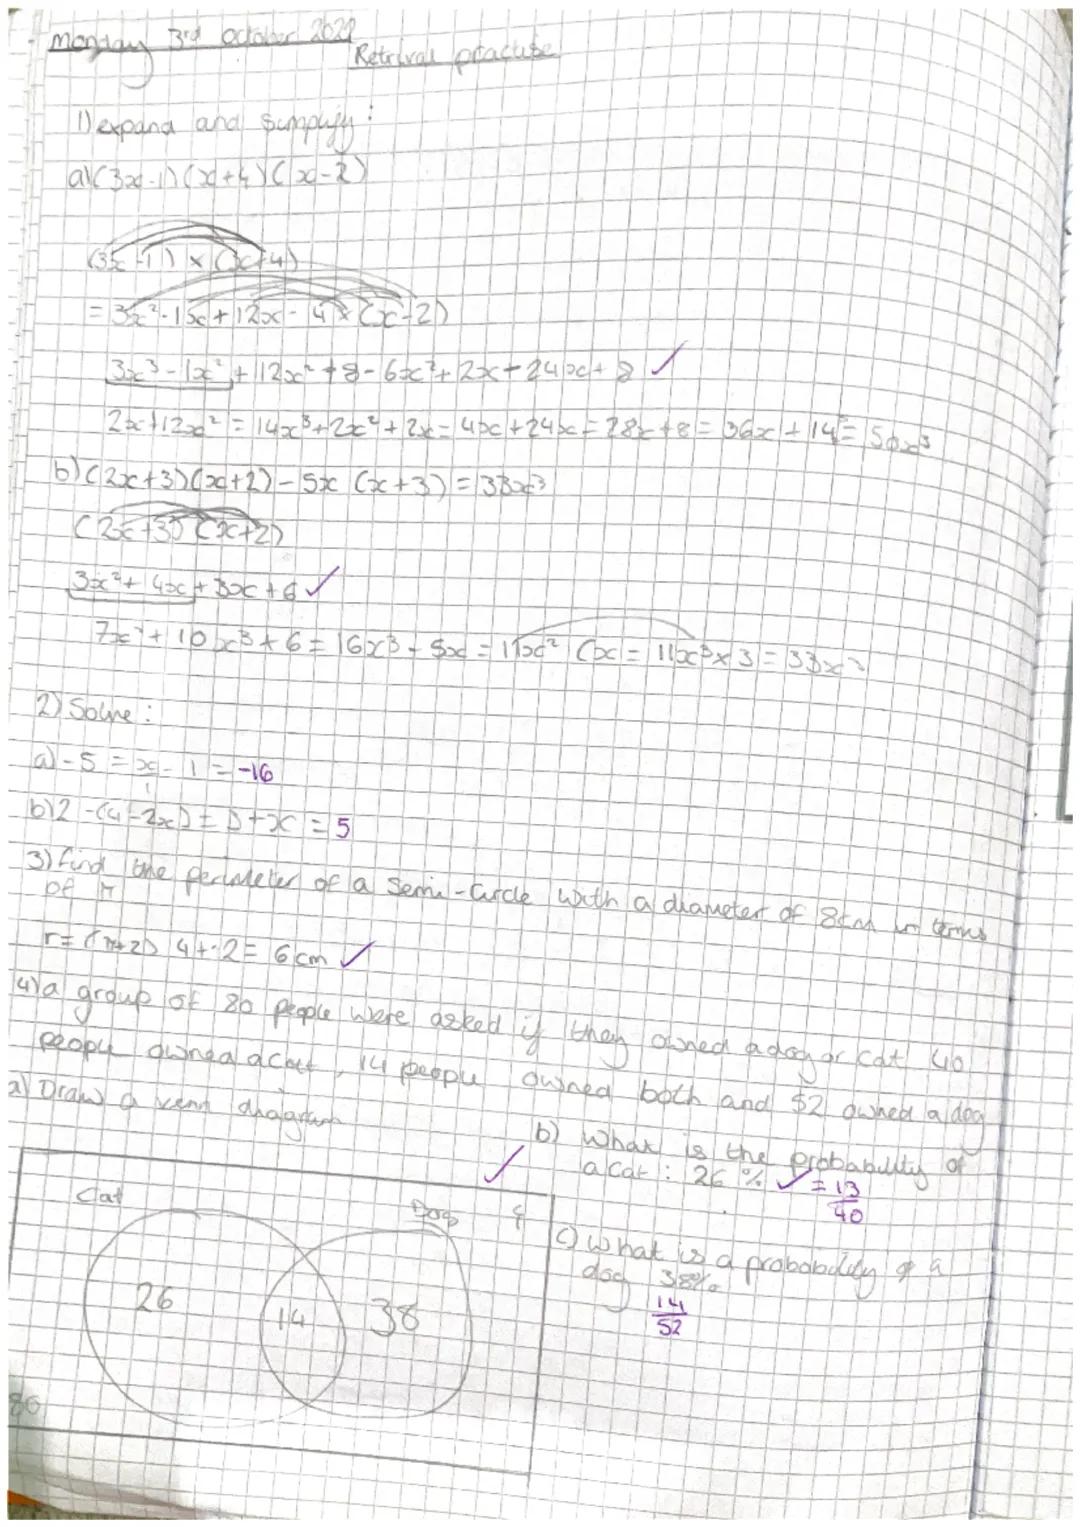 monday 3rd october 2022
Retrival practise
1) expand and simplify:
a) (3x-1)(x+4)(x-2)
(3x-1) × (x+4)
= 3x²-1x+12x-4 × (x-2)
3x³-1x²+12x²+8-6x²+2x-24x+8 ✓
2x+12x² = 14x³+2x²+2x = 4x+24x = 28x+8 = 36x+14 = 50x³
b) (2x+3)(x+2)-5x (x+3) = 33x³
(2x+3)(x+2)
3x²+4x+3x+6 ✓
7x²+10x³+6 = 16x³-5x = 11x² (x = 11x³×3 = 33x³
2) Solve:
a) -5 = x - 1 = -16
b) 2-(4-2x) = +x = 5
3) find the perimeter of a semi-circle with a diameter of 8cm in terms
of π
r = (π+2) 4+2 = 6cm ✓
4) a group of 80 people were asked if they owned a dog or cat 40
people owned a cat, 14 people owned both and 52 owned a dog
a) Draw a venn diagram
b) what is the probability of
a cat : 26% ✓ = 13/40
Cat
Dog
ξ
c) what is a probability of a
dog 38%
14/52
26
14
38
80